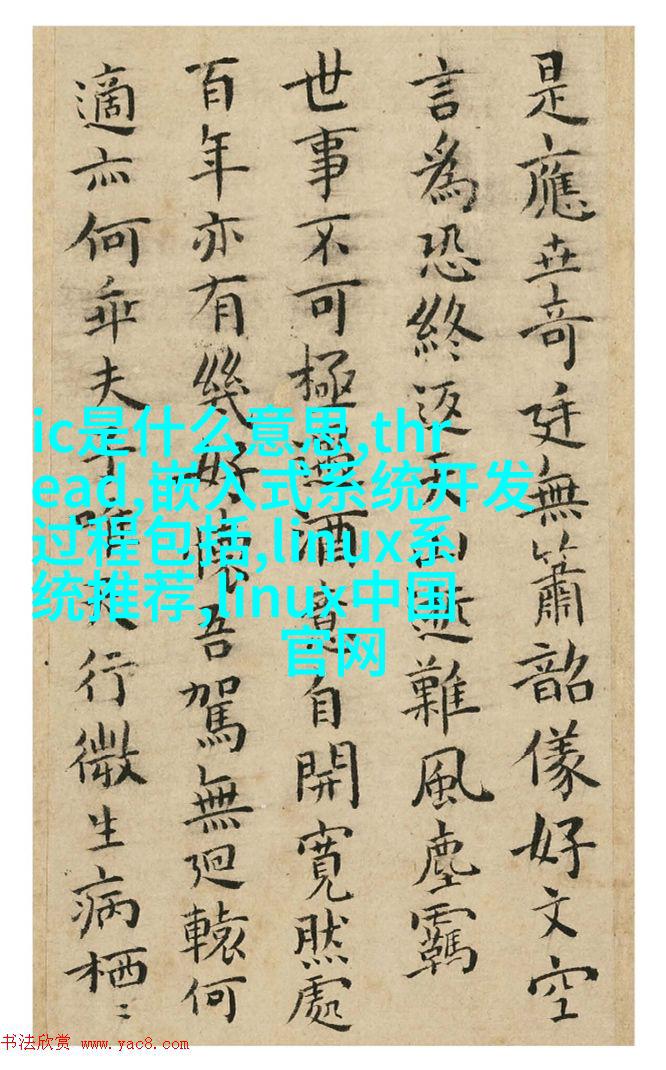 是應世奇廷無簫韶儀好文空
言為恐終返難風塵羈
世事不可極酒意自開寬然處
百年亦有幾好懷吾駕無迴轅何
適亦何乖夫行微生病栖〻
ic是什么意思,thr
ead,嵌入式系统开发
过程包括,linux系
统推荐,linux中国
官网
书法欣赏 www.yac8.com